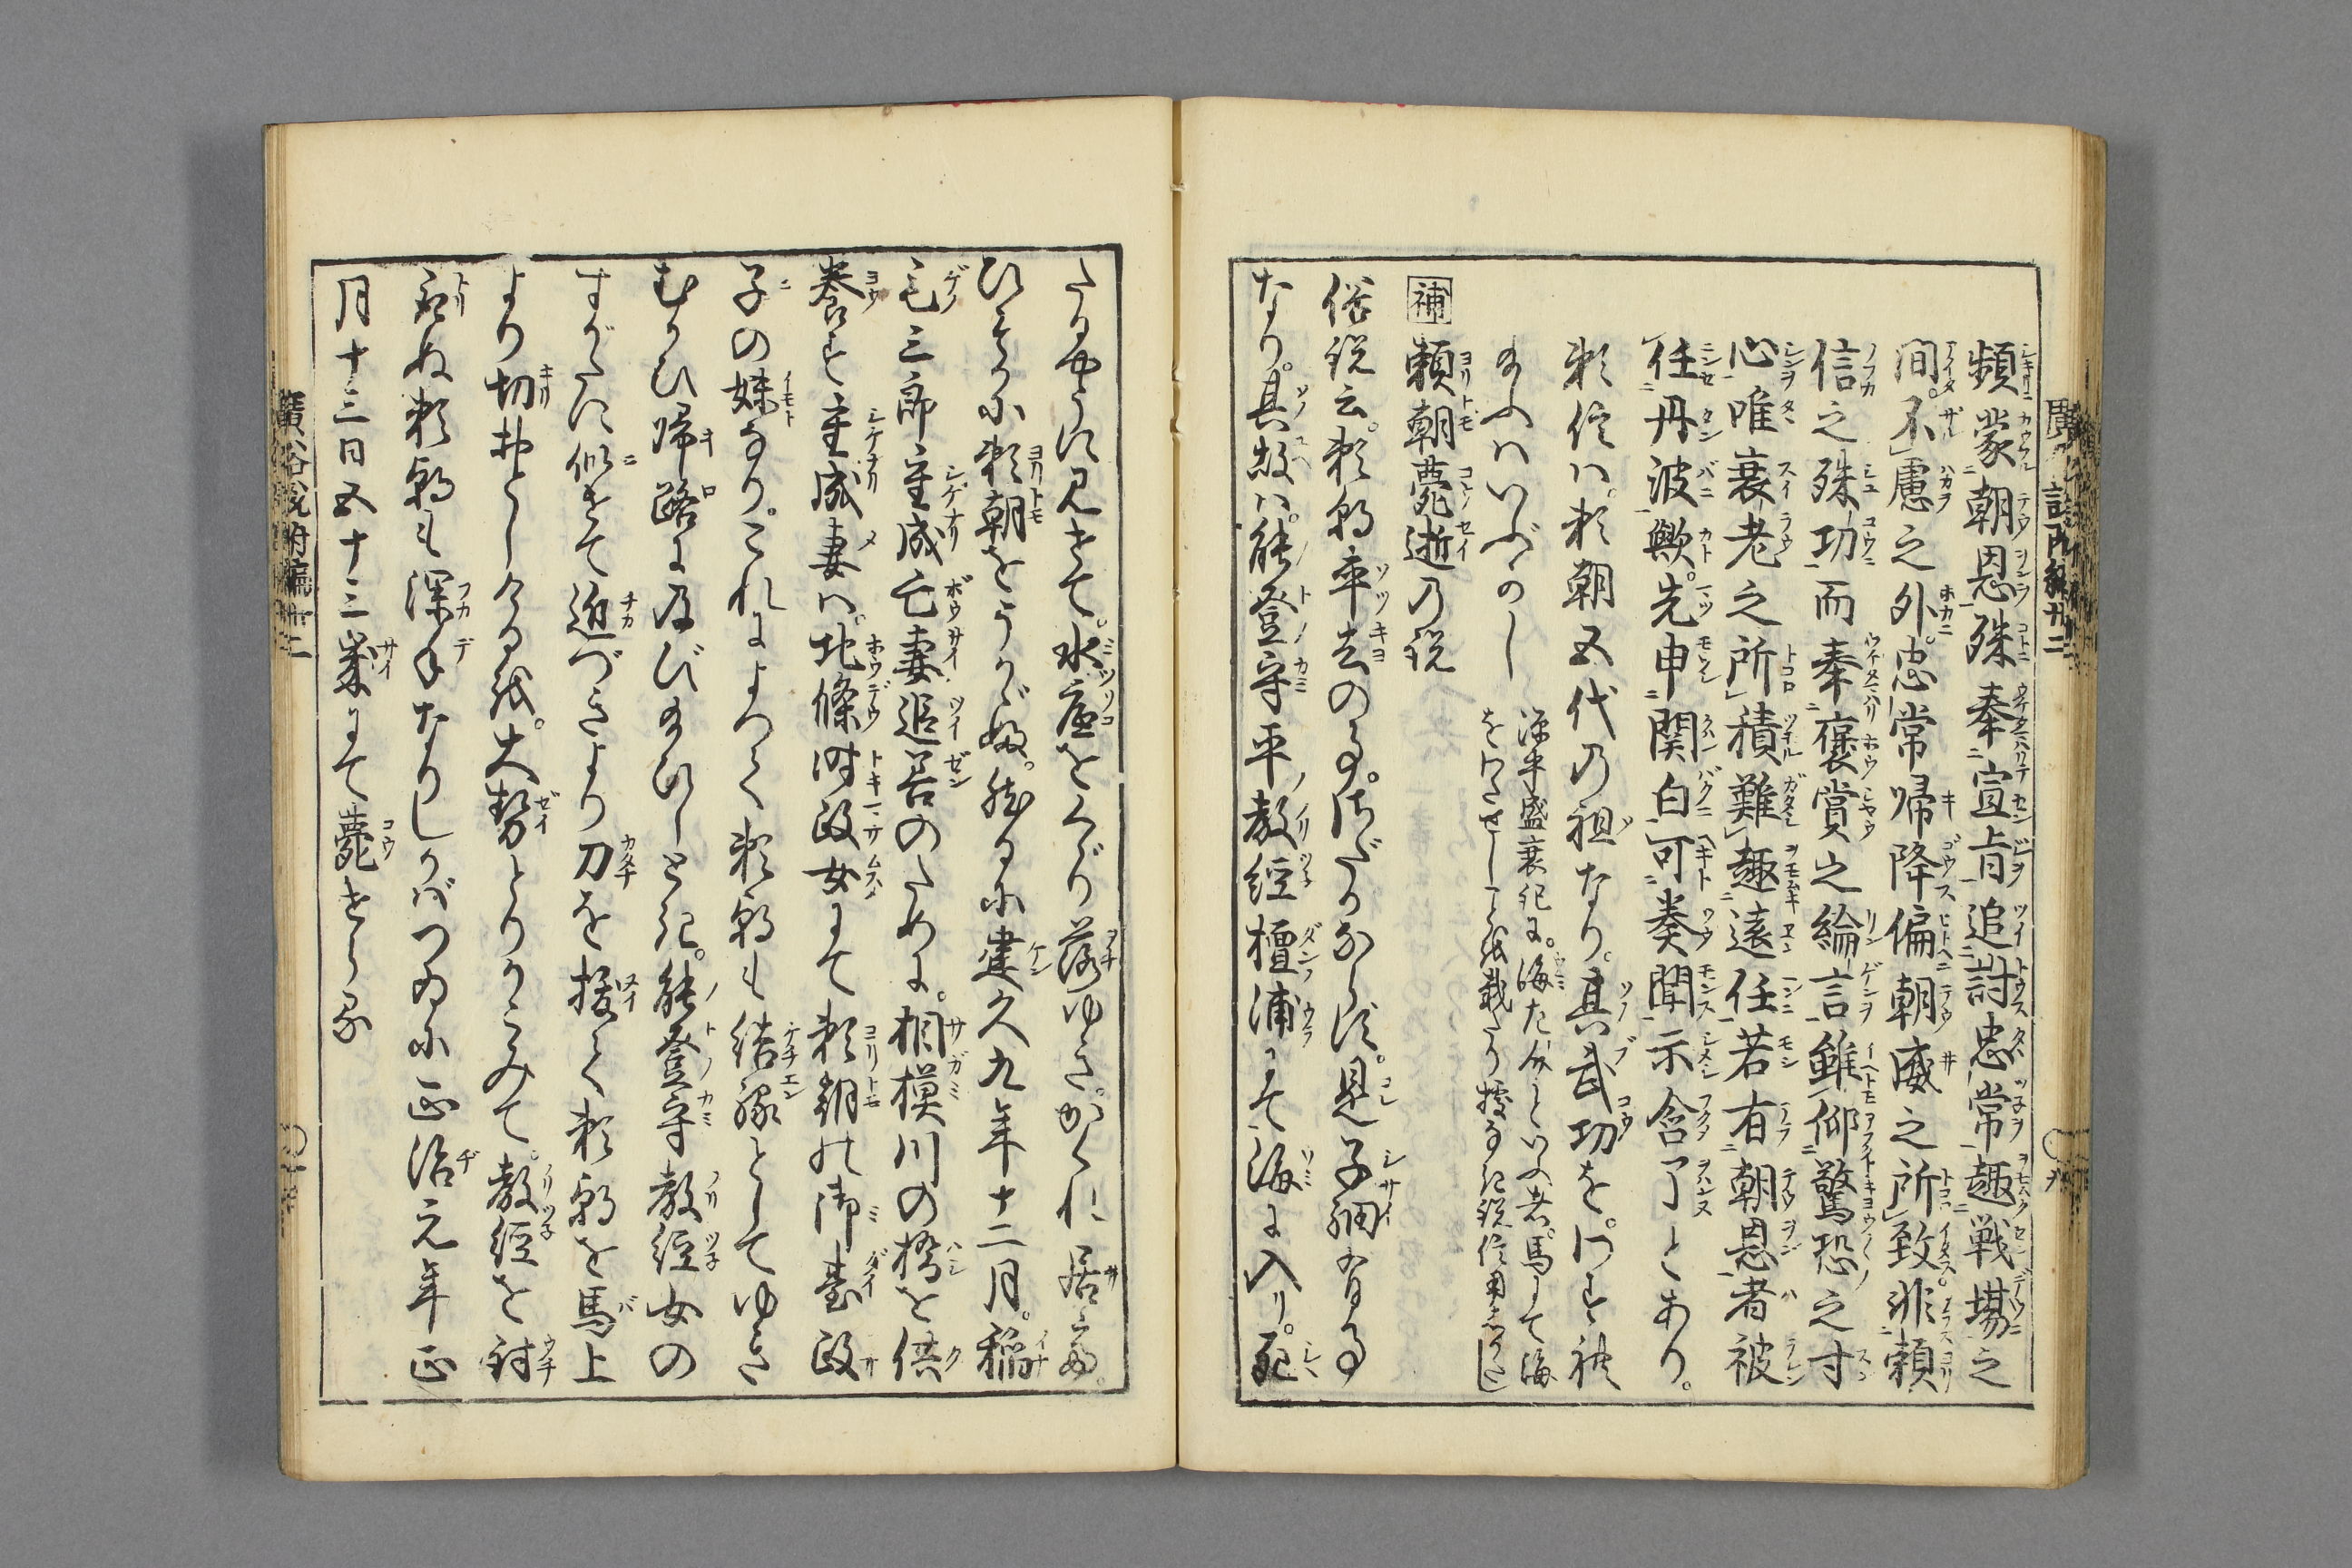 頻蒙朝恩殊奉宣旨追討忠常趣戦場之
間。不慮之外。忠常帰降偏朝威之所致非頼
信之殊功而奉褒賞之綸言雖仰驚恐之寸
心唯衰老之所積難趣遠任若有朝恩者被
任丹波歟。先申関白可奏聞示含了とあり。
頼信ハ。頼朝五代の祖なり。其武功を
補 頼朝薨逝の説
俗説云。頼朝卒去の事。是子細有事
なり。其故ハ。能登守平教経檀浦にて海に入り。死
たるやうに見せて。水底をくゞり落ゆき。かくれ居
ひそかに頼朝をうかゞふ。然るに建久九年十二月。稲
毛三郎重成亡妻追善のために。相模川の橋を供
養す重成妻ハ。北條時政女にて頼朝の御臺政
子の妹なり。これによつて頼朝も結縁としてゆき
むかひ帰路に及び給ひしとき。能登守教経女の
すがたに似せて近づきより刀を抜て頼朝を馬上
より切おとしける故。大勢とりかこみて。教経を討
取ぬ頼朝も深手なりしかバつゐに正治元年正
月十三日五十三歳にて薨せらる
廣俗説附編廿二